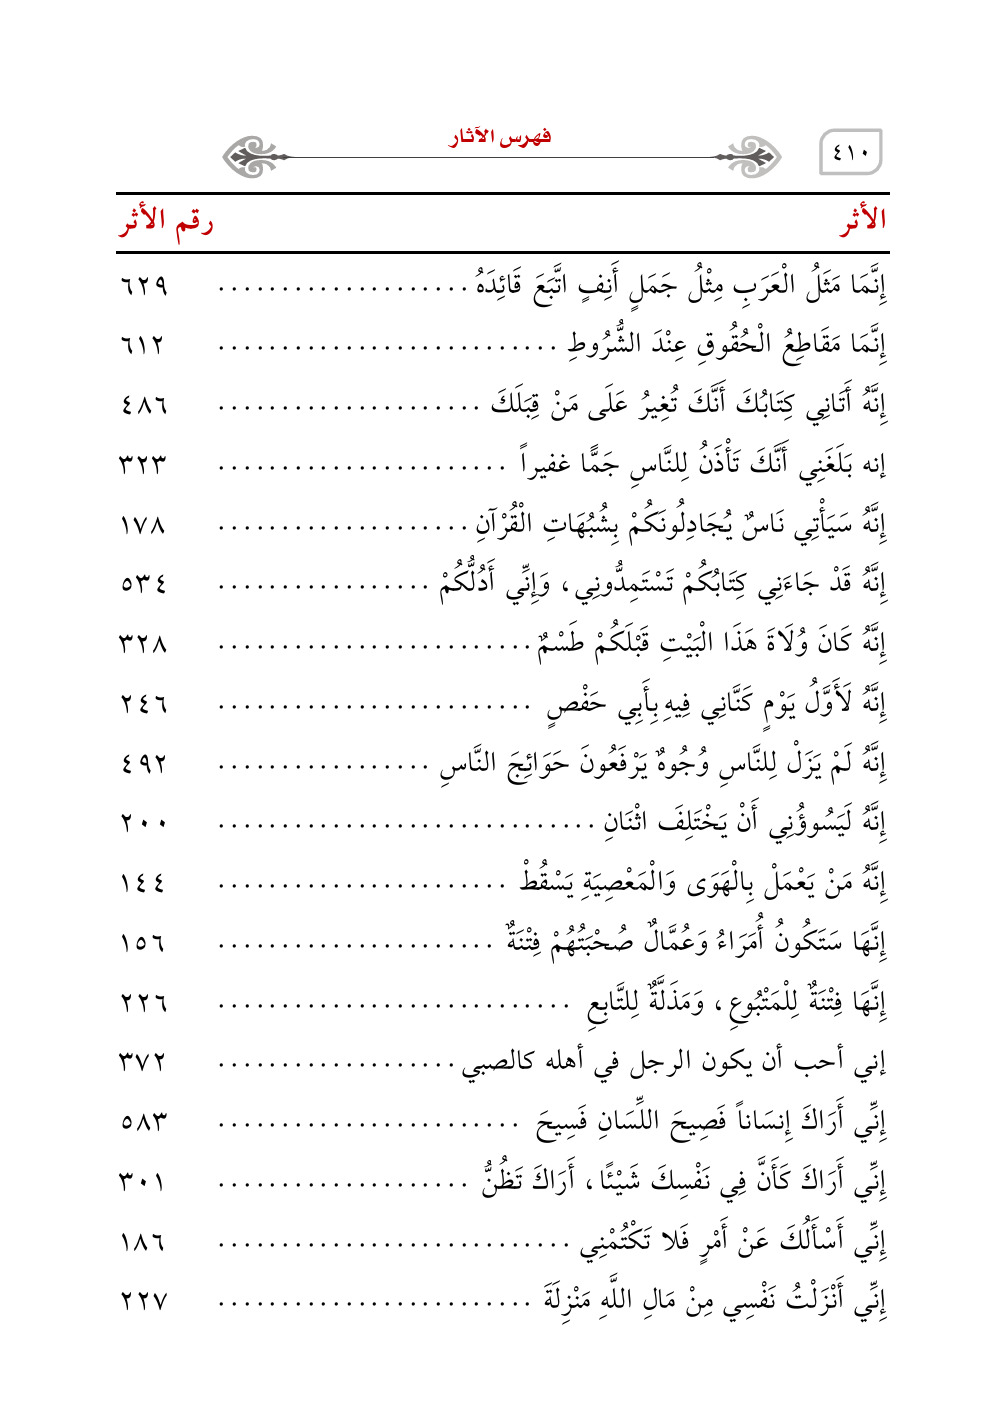 ٤١٠
فهرس الآثار
الأثر رقم الأثر
إِنَّمَا مَثَلُ الْعَرَبِ مِثْلُ جَمَلٍ أَنِفٍ اتَّبَعَ قَائِدَهُ .................... ٦٢٩
إِنَّمَا مَقَاطِعُ الْحُقُوقِ عِنْدَ الشُّرُوطِ ........................... ٦١٢
إِنَّهُ أَتَانِي كِتَابُكَ أَنَّكَ تُغِيرُ عَلَى مَنْ قِبَلَكَ ..................... ٤٨٦
إنه بَلَغَنِي أَنَّكَ تَأْذَنُ لِلنَّاسِ جَمًّا غفيراً ....................... ٣٢٣
إِنَّهُ سَيَأْتِي نَاسٌ يُجَادِلُونَكُمْ بِشُبُهَاتِ الْقُرْآنِ .................... ١٧٨
إِنَّهُ قَدْ جَاءَنِي كِتَابُكُمْ تَسْتَمِدُّونِي، وَإِنِّي أَدُلُّكُمْ ................. ٥٣٤
إِنَّهُ كَانَ وُلَاةَ هَذَا الْبَيْتِ قَبْلَكُمْ طَسْمٌ ......................... ٣٢٨
إِنَّهُ لَأَوَّلُ يَوْمٍ كَنَّانِي فِيهِ بِأَبِي حَفْصٍ ......................... ٢٤٦
إِنَّهُ لَمْ يَزَلْ لِلنَّاسِ وُجُوهٌ يَرْفَعُونَ حَوَائِجَ النَّاسِ ................. ٤٩٢
إِنَّهُ لَيَسُوؤُنِي أَنْ يَخْتَلِفَ اثْنَانِ .............................. ٢٠٠
إِنَّهُ مَنْ يَعْمَلْ بِالْهَوَى وَالْمَعْصِيَةِ يَسْقُطْ ....................... ١٤٤
إِنَّهَا سَتَكُونُ أُمَرَاءُ وَعُمَّالٌ صُحْبَتُهُمْ فِتْنَةٌ ...................... ١٥٦
إِنَّهَا فِتْنَةٌ لِلْمَتْبُوعِ، وَمَذَلَّةٌ لِلتَّابِعِ ............................ ٢٢٦
إني أحب أن يكون الرجل في أهله كالصبي ................... ٣٧٢
إِنِّي أَرَاكَ إِنسَاناً فَصِيحَ اللِّسَانِ فَسِيحَ ........................ ٥٨٣
إِنِّي أَرَاكَ كَأَنَّ فِي نَفْسِكَ شَيْئًا، أَرَاكَ تَظُنُّ .................... ٣٠١
إِنِّي أَسْأَلُكَ عَنْ أَمْرٍ فَلا تَكْتُمْنِي ............................ ١٨٦
إِنِّي أَنْزَلْتُ نَفْسِي مِنْ مَالِ اللَّهِ مَنْزِلَةَ ......................... ٢٢٧